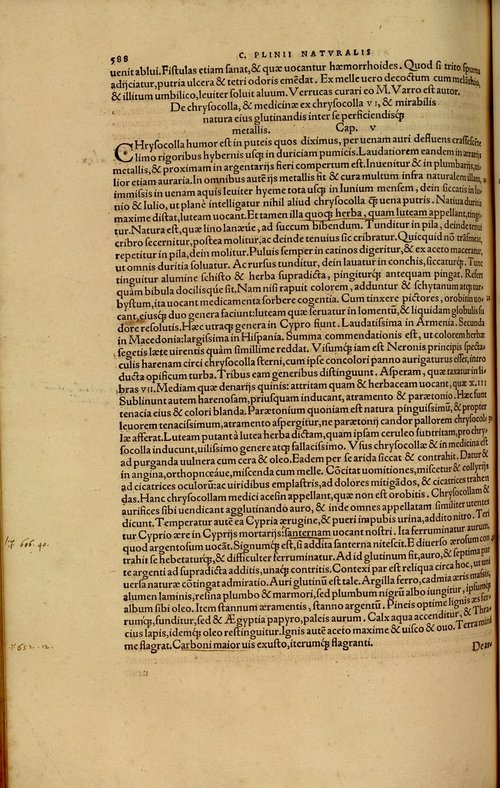 588
C. PLINII NATVRALIS
uenit ablui. Fistulas etiam sanat, & quæ uocantur hæmorrhoides. Quod si trito spuma
adijciatur, putria ulcera & tetri odoris emẽdat. Ex melle uero decoctum cum
& illitum umbilico, leuiter soluit aluum. Verrucas curari eo M. Varro est autor.
De chrysocolla, & medicinæ ex chrysocolla VI, & mirabilis
natura eius glutinandis inter se perficiendisq̃
metallis. Cap. V
CHrysocolla humor est in puteis quos diximus, per uenam auri defluens crassescẽte
limo rigoribus hybernis usq̃ in duriciam pumicis. Laudatiorem eandem in ærarijs
metallis, & proximam in argentarijs fieri compertum est. Inuenitur & in plumbarijs, ui-
lior etiam auraria. In omnibus autẽ ijs metallis fit & cura multum infra naturalem illam,
immissis in uenam aquis leuiter hyeme tota usq̃ in Iunium mensem, dein siccatis in Iu-
nio & Iulio, ut planè intelligatur nihil aliud chrysocolla q̃ uena putris. Natiua duritia
maxime distat, luteam uocant. Et tamen illa quoq̃ herba, quam luteam appellant, tingi-
tur. Natura est, quæ lino lanæue, ad succum bibendum. Tunditur in pila, deinde tenui
cribro secernitur, postea molitur, ac deinde tenuius sic cribratur. Quicquid nõ trãsmeat,
repetitur in pila, dein molitur. Puluis semper in catinos digeritur, & ex aceto maceratur,
ut omnis duritia soluatur. Ac rursus tunditur, dein lauatur in conchis, siccaturq̃. Tunc
tinguitur alumine schisto & herba supradicta, pingiturq̃ antequam pingat. Refert
quàm bibula docilisque sit. Nam nisi rapuit colorem, adduntur & schytanum atq̃ tur-
bystum, ita uocant medicamenta sorbere cogentia. Cum tinxere pictores, orobitin uo-
cant, eiusq̃ duo genera faciunt: luteam quæ seruatur in lomentũ, & liquidam globulis su
dore resolutis. Hæc utraq̃ genera in Cypro fiunt. Laudatissima in Armenia. Secunda
in Macedonia: largissima in Hispania. Summa commendationis est, ut colorem herbæ
segetis lætæ uirentis quàm simillime reddat. Visumq̃ iam est Neronis principis specta-
culis harenam circi chrysocolla sterni, cum ipse concolori panno aurigaturus esset, intro
ducta opificum turba. Tribus eam generibus distinguunt. Asperam, quæ taxatur in li-
bras VII. Mediam quæ denarijs quinis: attritam quam & herbaceam uocant, quæ X. III
Sublinunt autem harenosam, priusquam inducant, atramento & parætonio. Hæc sunt
tenacia eius & colori blanda. Parætonium quoniam est natura pinguissimũ, & propter
leuorem tenacissimum, atramento aspergitur, ne parætonij candor pallorem chrysocol-
læ afferat. Luteam putant à lutea herba dictam, quam ipsam ceruleo subtritam, pro chry-
socolla inducunt, uilissimo genere atq̃ fallacissimo. Vsus chrysocollæ & in medicina est
ad purganda uulnera cum cera & oleo. Eadem per se arida siccat & contrahit. Datur &
in angina, orthopnœáue, miscenda cum melle. Cõcitat uomitiones, miscetur & collyrijs
ad cicatrices oculorũ: ac uiridibus emplastris, ad dolores mitigãdos, & cicatrices trahen
das. Hanc chrysocollam medici acesin appellant, quæ non est orobitis. Chrysocollam &
aurifices sibi uendicant agglutinando auro, & inde omnes appellatam similiter utentes
dicunt. Temperatur autẽ ea Cypria ærugine, & pueri impubis urina, addito nitro. Teri
tur Cyprio ære in Cyprijs mortarijs: santernam uocant nostri. Ita ferruminatur aurum,
quod argentosum uocãt. Signumq̃ est, si addita santerna nitescit. E diuerso ærosum con-
trahit se hebetaturq̃, & difficulter ferruminatur. Ad id glutinum fit, auro, & septima par
te argenti ad supradicta additis, unaq̃ contritis. Contexi par est reliqua circa hoc, ut uni
uersa naturæ cõtingat admiratio. Auri glutinũ est tale. Argilla ferro, cadmia æris massis,
alumen laminis, resina plumbo & marmori, sed plumbum nigrũ albo iungitur, ipsumq̃
album sibi oleo. Item stannum æramentis, stanno argentũ. Pineis optime lignis æs fer-
rumq̃, funditur, sed & Ægyptia papyro, paleis aurum. Calx aqua accenditur, & Thra
cius lapis, idemq̃ oleo restinguitur. Ignis autẽ aceto maxime & uisco & ouo. Terra mini
me flagrat. Carboni maior uis exusto, iterumq̃ flagranti.